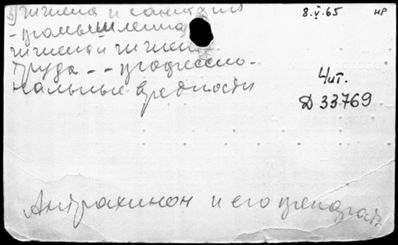 Гигиена и санитария
8.V.65 НР
- промышленная
гигиена и гигиена
труда - - профессио-
нальные вредности
Чит.
Д 33769
Антрахинон и его препараты